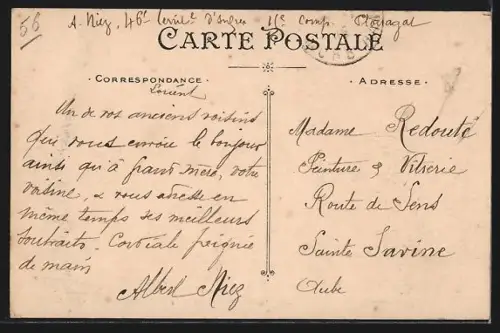 56
A. Niez, 46e Terrial d'Inf 11e Comp.
CARTE POSTALE
CORRESPONDANCE
ADRESSE
Lorient
Un de vos anciens voisins
qui vous envoie le bonjour
ainsi qu'à grand'mère, votre
voisine, & vous adresse en
même temps ses meilleurs
souhaits. Cordiale poignée
de main
Albert Niez
Madame Redouté
Peinture & Vitrerie
Route de Sens
Sainte Savine
Aube